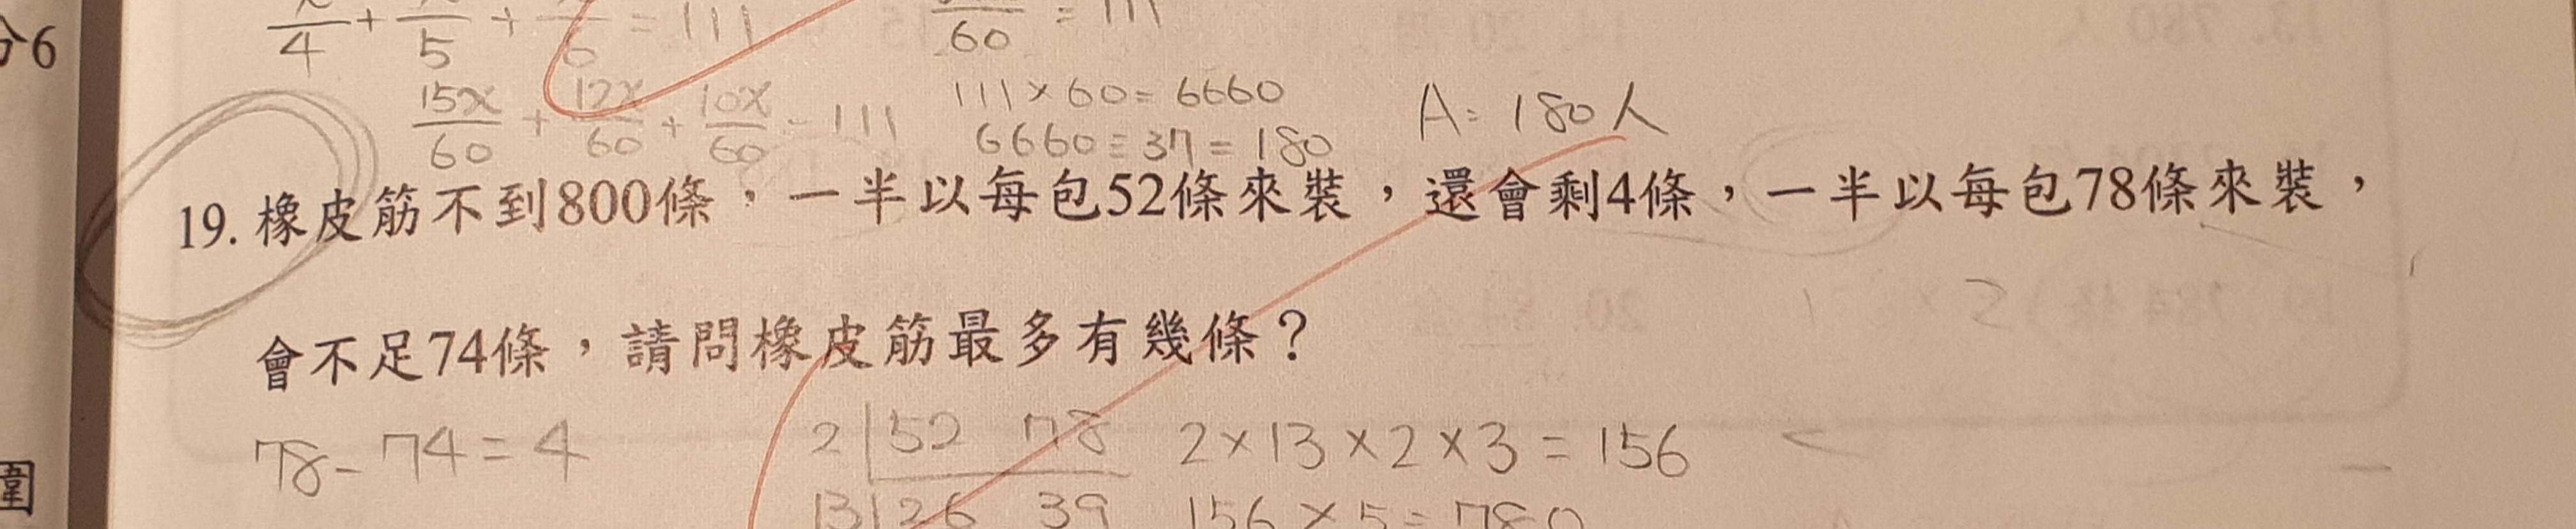 分6
4 + 5 + 6 = 111
60 = 111
15x/60 + 12x/60 + 10x/60 = 111
111×60=6660
6660÷37=180
A: 180人
19. 橡皮筋不到800條，一半以每包52條來裝，還會剩4條，一半以每包78條來裝，
會不足74條，請問橡皮筋最多有幾條？
78-74=4
2 52 78
2×13×2×3=156
13 26 39
156×5=780
圍